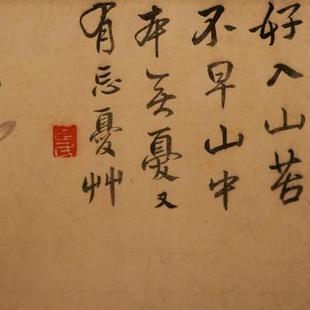 好入山苦
不早山中
本無憂又
有忘憂艸